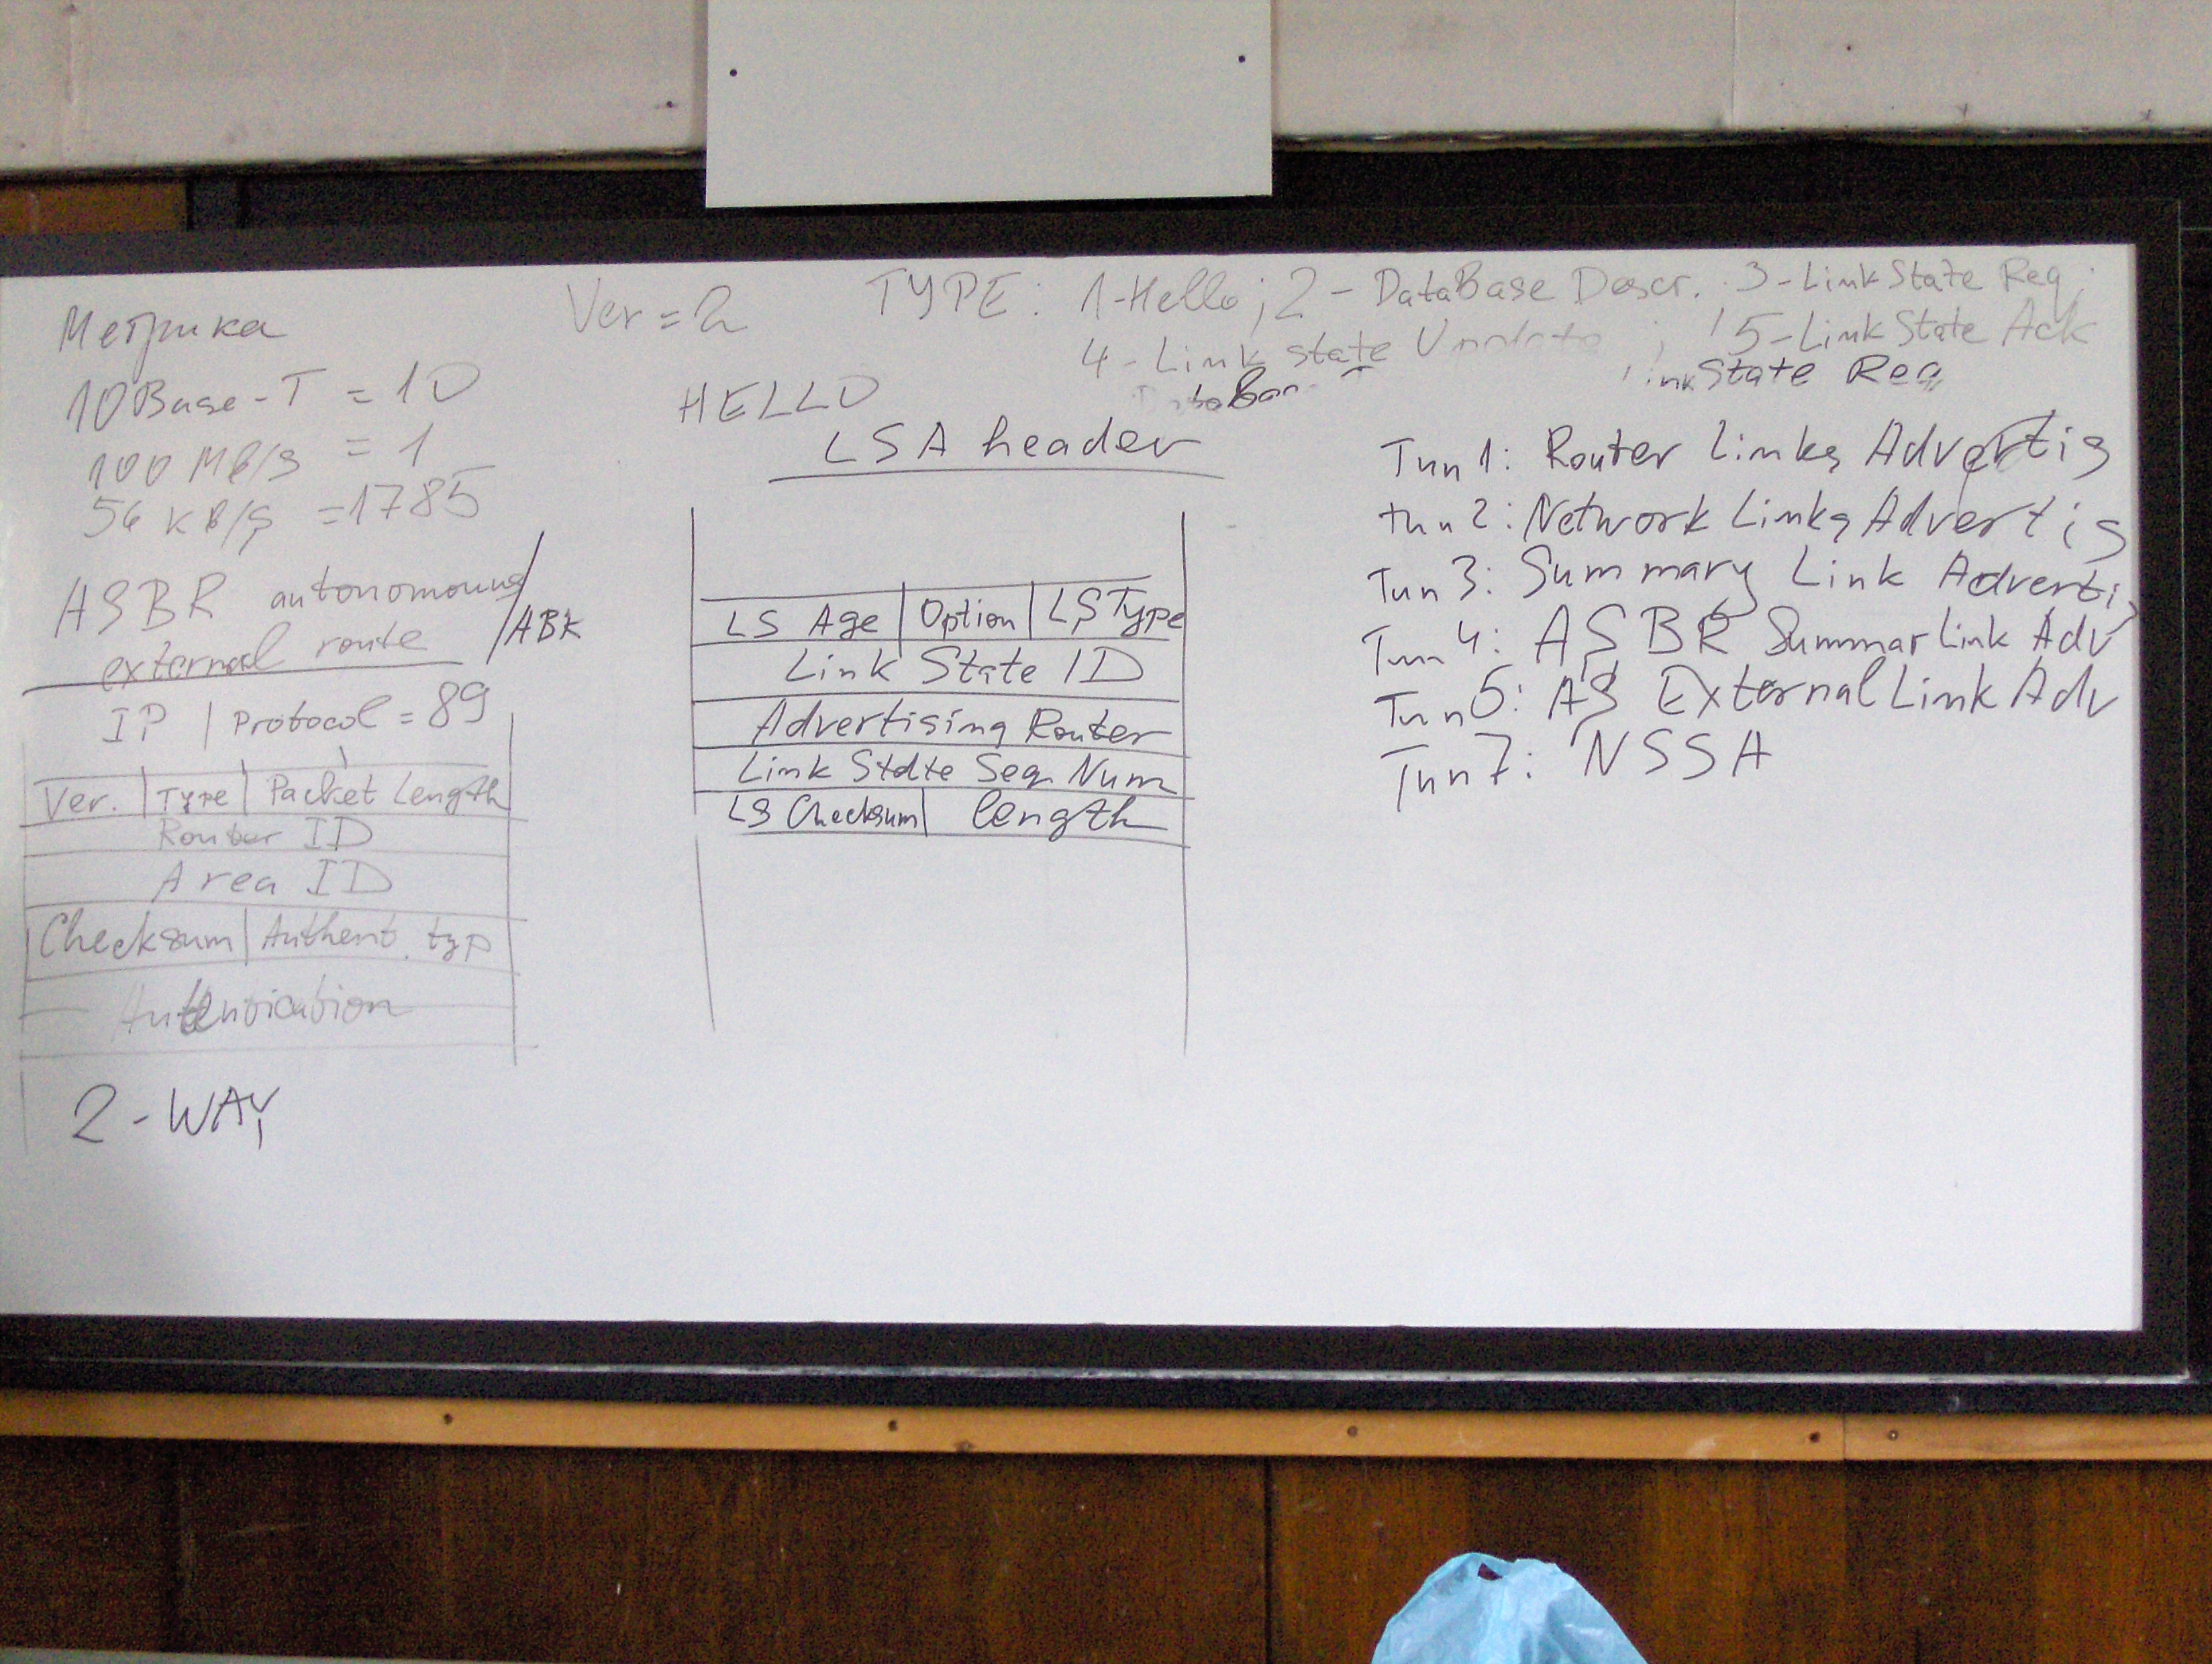 Метрика
10Base-T = 10
100 Мб/s = 1
56 кB/s = 1785
ASBR autonomous
external route /ABR
IP | Protocol = 89
Ver. | Type | Packet Length
Router ID
Area ID
Checksum | Authent. typ
Authentication
2-WAY
Ver = 2
TYPE: 1-Hello; 2 - DataBase Descr. 3-Link State Req;
4 - Link state Update ; 5-Link State Ack
State Req
HELLO
LSA header
LS Age | Option | LS Type
Link State ID
Advertising Router
Link State Seq. Num
LS Checksum | length
Тип 1: Router Links Advertis
тип 2: Network Links Advertis
Тип 3: Summary Link Adverti
Тип 4: ASBR Summar Link Adv
Тип 5: AS External Link Adv
Тип 7: NSSA